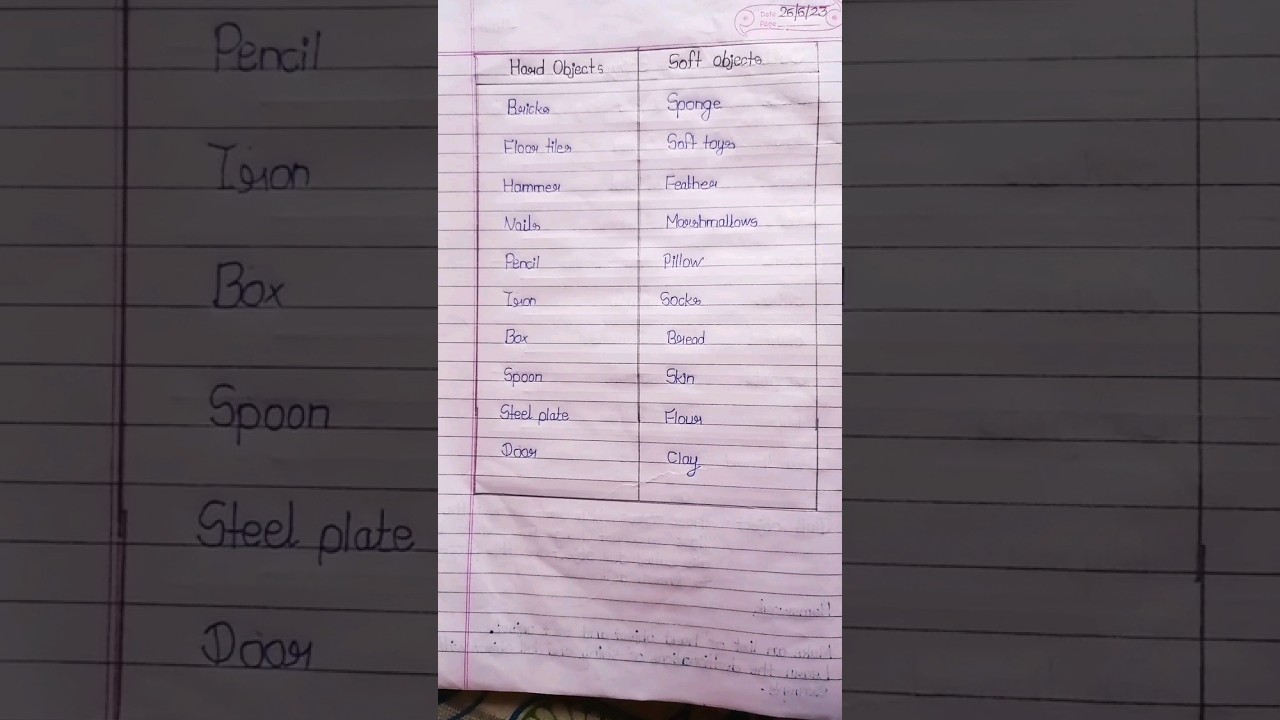 Date 26/6/23
Page
Hard Objects Soft objects
Bricks Sponge
Floor tiles Soft toys
Hammer Feather
Nails Marshmallows
Pencil Pillow
Iron Socks
Box Bread
Spoon Skin
Steel plate Flour
Door Clay
Pencil
Iron
Box
Spoon
Steel plate
Door